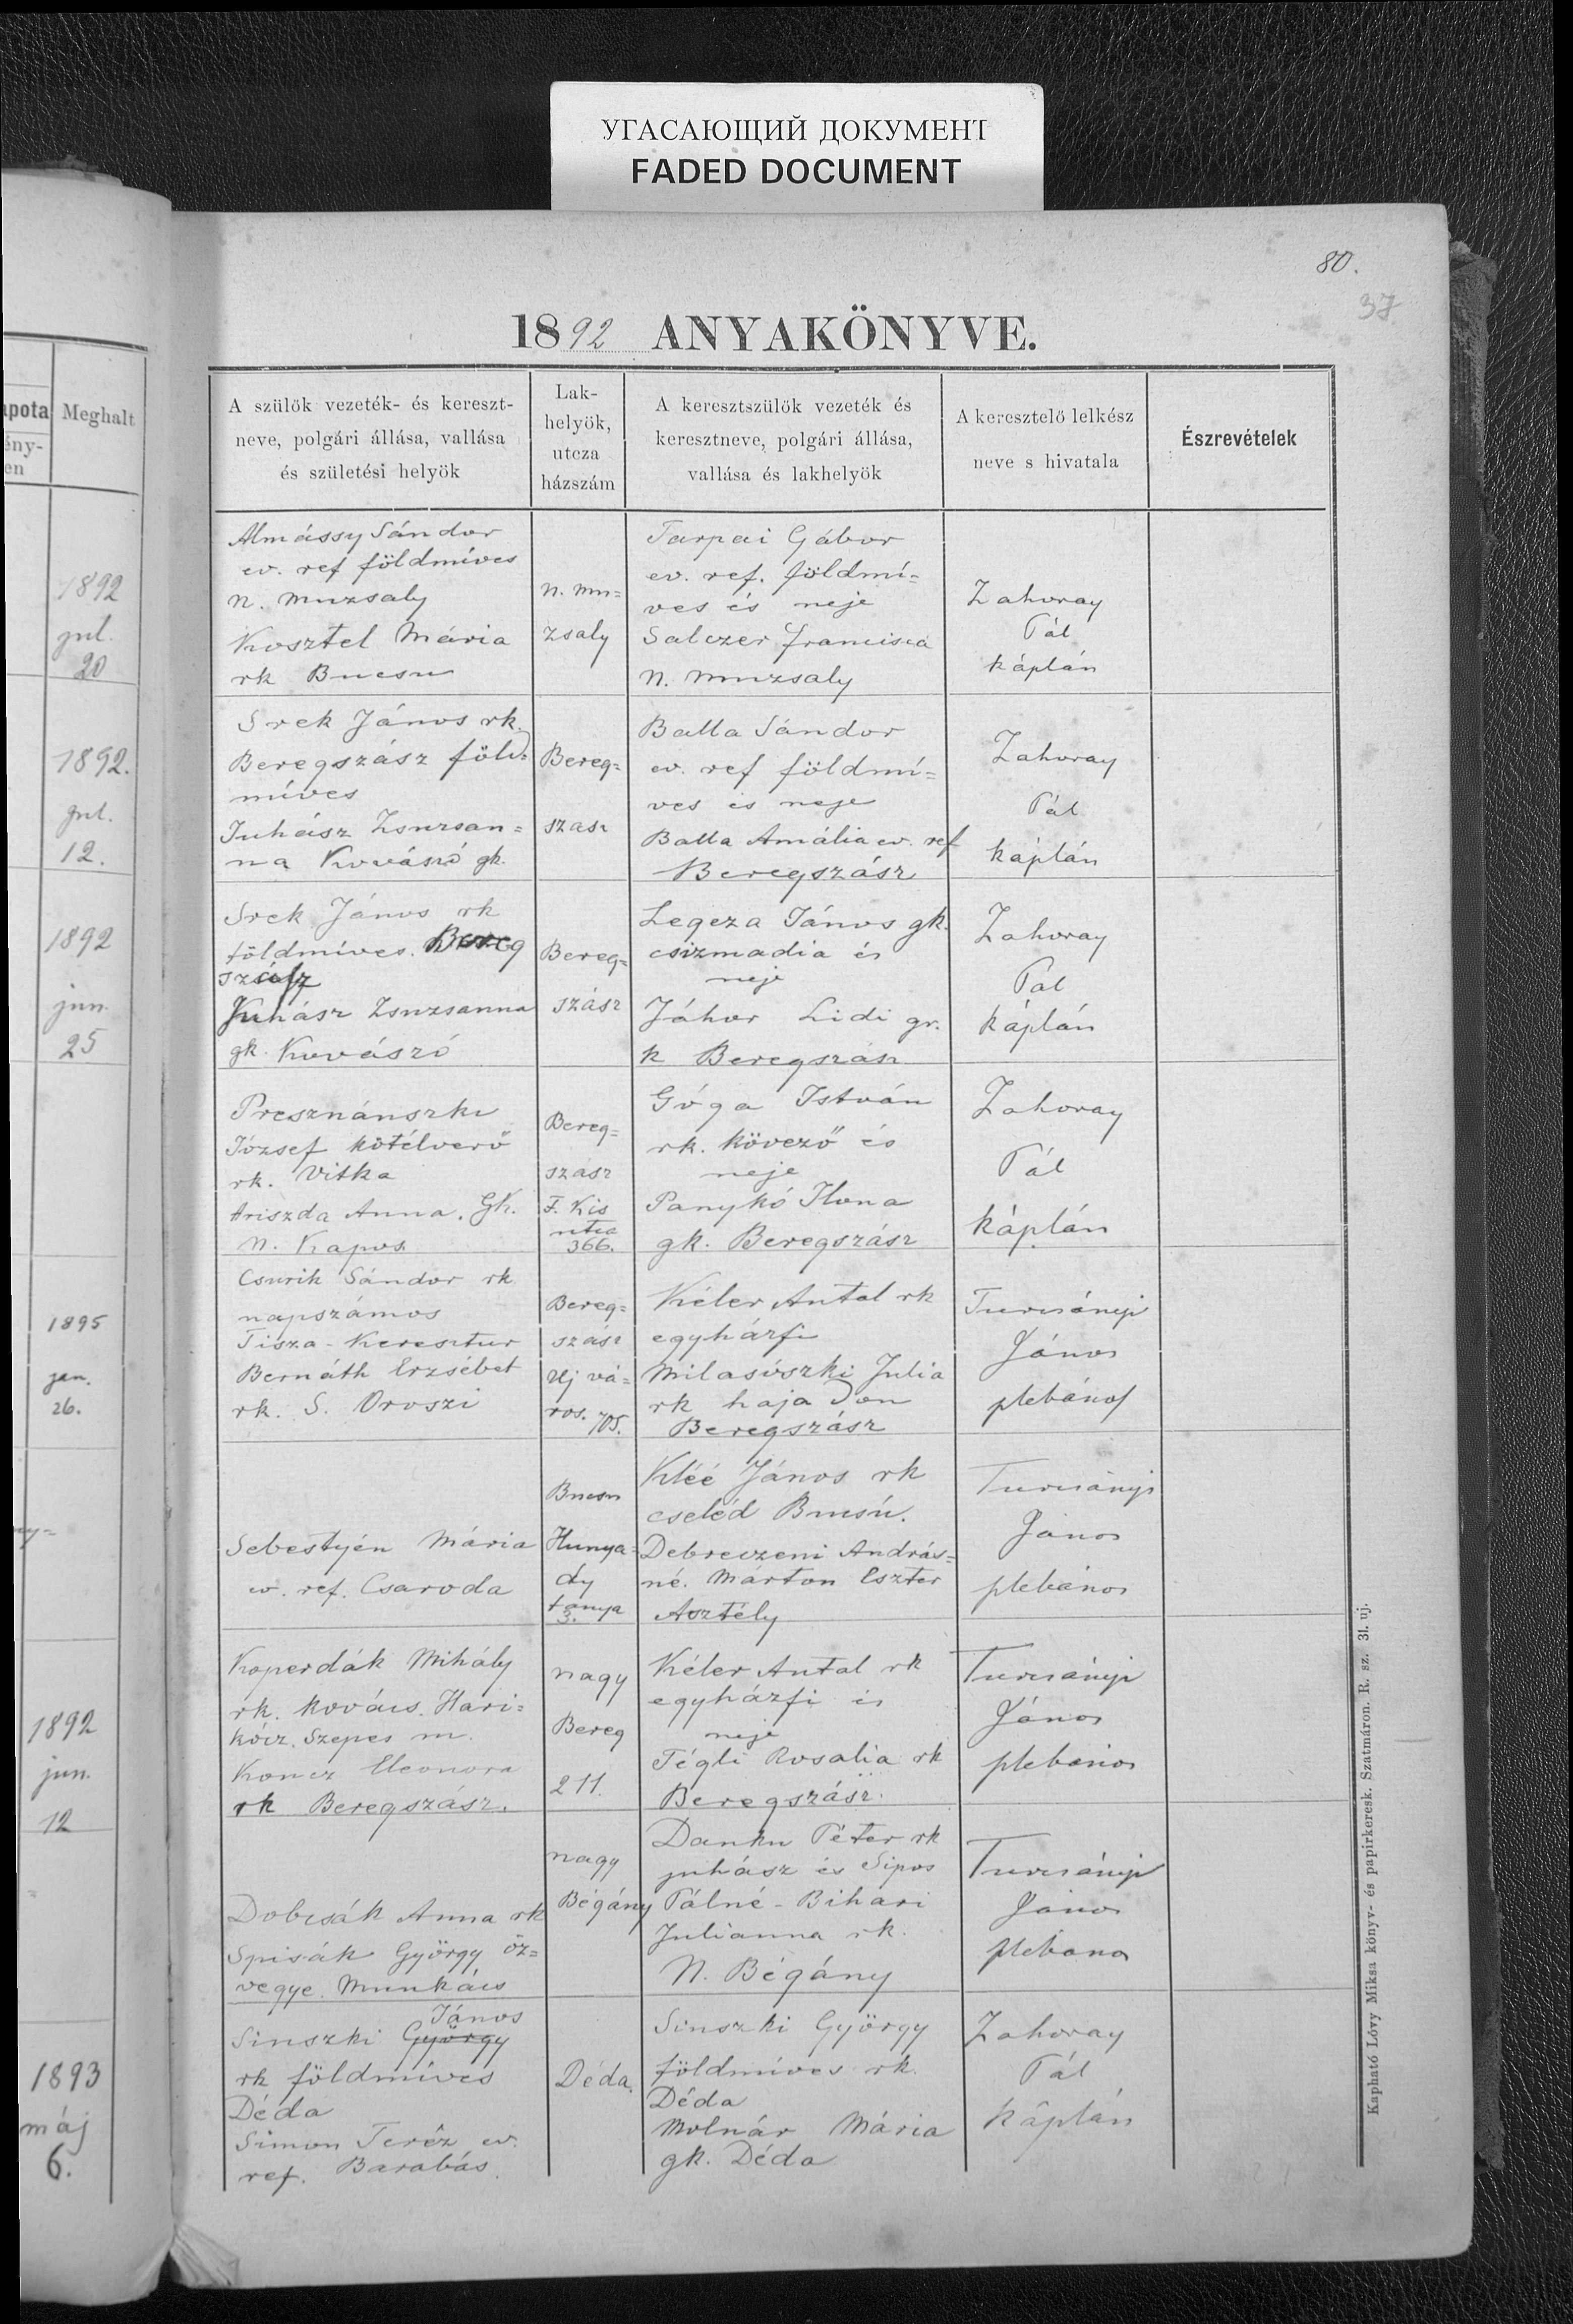 УГАСАЮЩИЙ ДОКУМЕНТ
FADED DOCUMENT
80.
37
1892 ANYAKÖNYVE.
apota
ény-
en
Meghalt
A szülők vezeték- és kereszt-
neve, polgári állása, vallása
és születési helyök
Lak-
helyök,
utcza
házszám
A keresztszülők vezeték és
keresztneve, polgári állása,
vallása és lakhelyök
A keresztelő lelkész
neve s hivatala
Észrevételek
1892
jul.
20
Almássy Sándor
ev. ref földmíves
N. Muzsaly
Kosztel Mária
rk Bucsu
N. Mu=
zsaly
Tarpai Gábor
ev. ref. földmí=
ves és neje
Salczer Francisca
N. Muzsaly
Zahoray
Pál
káplán
1892.
jul.
12.
Srek János rk.
Beregszász föld=
míves
Juhász Zsuzsan=
na Kovászó gk.
Bereg=
szász
Balla Sándor
ev. ref földmí=
ves és neje
Balla Amália ev. ref
Beregszász
Zahoray
Pál
káplán
1892
jun.
25
Srek János rk
földmíves. Bereg
szász
Juhász Zsuzsanna
gk. Kovászó
Bereg=
szász
Legeza János gk.
csizmadia és
neje
Jáhor Lidi gr.
k Beregszász
Zahoray
Pál
káplán
Presznánszki
József kötélverő
rk. Vitka
Hriszda Anna. Gk.
N. Kapos.
Bereg=
szász
F. Kis
utca
366.
Góga István
rk. kövező és
neje
Panykó Ilona
gk. Beregszász
Zahoray
Pál
káplán
1895
jan.
26.
Csurik Sándor rk
napszámos
Tisza-Keresztur
Bernáth Erzsébet
rk. S. Oroszi
Bereg=
szász
Uj vá=
ros. 705.
Kéler Antal rk
egyházfi
Milasószki Julia
rk hajadon
Beregszász
Turcsányi
János
plebános
Sebestyén Mária
ev. ref. Csaroda
Bucsu
Hunya=
dy
tanya
3.
Kléé János rk
cseléd Bucsú.
Debreczeni András=
né. Márton Eszter
Asztély
Turcsányi
János
plebános
1892
jun.
12
Koperdák Mihály
rk. kovács. Hari=
kócz. Szepes m.
Koncz Eleonora
rk Beregszász.
Nagy
Bereg
211.
Kéler Antal rk
egyházfi és
neje
Tégli Rosalia rk
Beregszász.
Turcsányi
János
plebános
Dobcsák Anna rk
Spisák György öz=
vegye. Munkács
Nagy
Bégány
Danku Péter rk
juhász és Sipos
Pálné-Bihari
Julianna rk.
N. Bégány
Turcsányi
János
plebános
1893
máj
6.
János
Sinszki György
rk földmíves
Déda
Simon Teréz ev.
ref. Barabás.
Déda.
Sinszki György
földmíves rk.
Déda
Molnár Mária
gk. Déda
Zahoray
Pál
káplán
Kapható Lővy Miksa könyv- és papirkeresk. Szatmáron. R. sz. 31. uj.